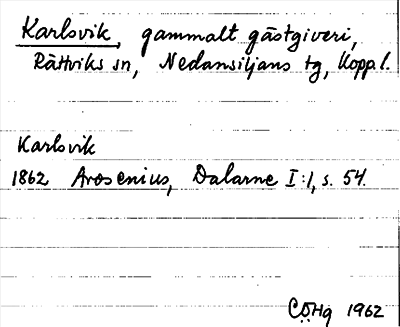 Karlsvik, gammalt gästgiveri,
Rättviks sn, Nedansiljans tg, Kopp. l.
Karlsvik
1862 Arosenius, Dalarne I:1, s. 54.
CÖHg 1962